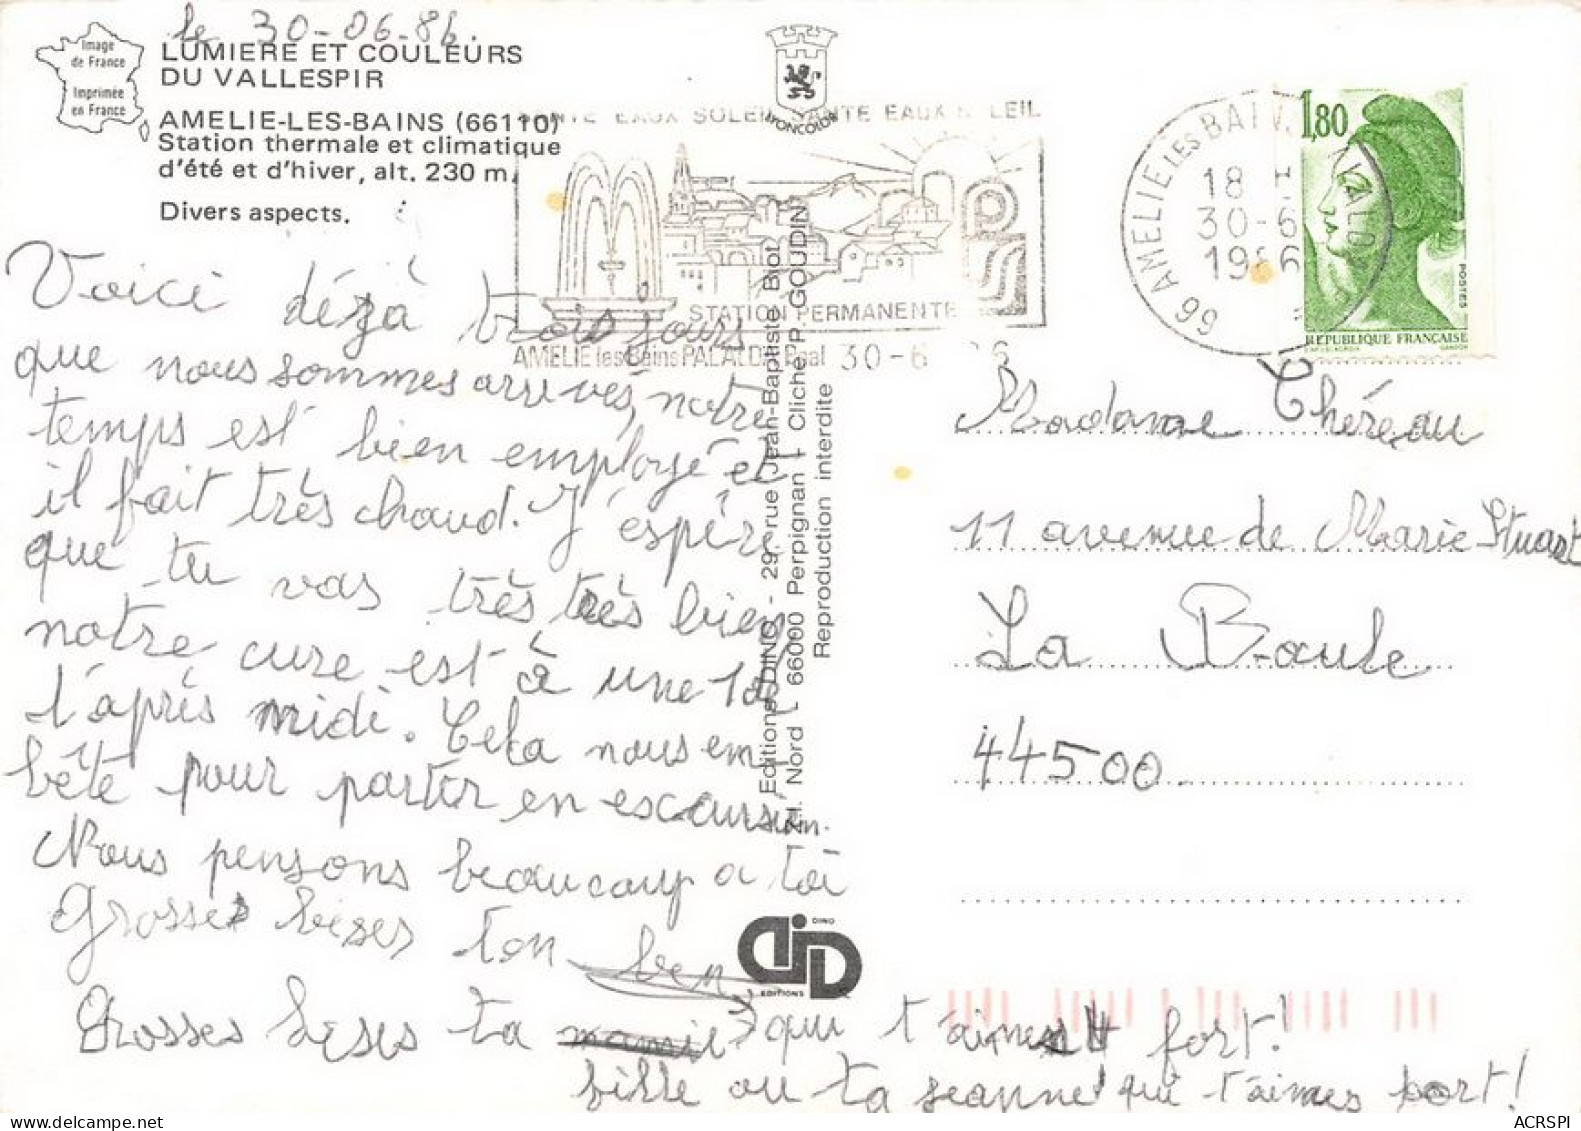 le 30-06-86.
Image
de France
Imprimée
en France
LUMIERE ET COULEURS
DU VALLESPIR
AMELIE-LES-BAINS (66110)
Station thermale et climatique
d'été et d'hiver, alt. 230 m.
Divers aspects.
LYONCOLOR
SANTE EAUX SOLEIL SANTE EAUX SOLEIL
STATION PERMANENTE
AMELIE les Bains PALALDA Ppal 30-6
AMELIE LES BAINS
18 H
30-6
1986
66
1,80
POSTES
REPUBLIQUE FRANÇAISE
Voici déjà trois jours
que nous sommes arrivés, notre
temps est bien employé et
il fait très chaud. J'espère
que tu vas très très bien
notre cure est à une
l'après midi. Cela nous em
bête pour partir en escursion.
Nous pensons beaucoup a toi
Grosses bises ton
Grosses bises ta mamie qui t'aimes fort!
fille ou ta jeanne qui t'aimes fort!
Editions DINO - 29, rue Jean-Baptiste Biot
Z.I. Nord - 66000 Perpignan - Cliché P. GOUDIN
Reproduction interdite
DINO
EDITIONS
Madame Théreau
11 avenue de Marie Stuart
La Baule
44500
ACRSPI